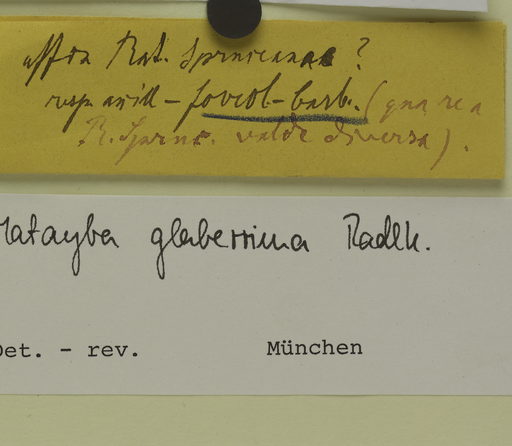 affin Rat. Spruceanae?
resp. axill - foveol-barb. (qua re a
R. Spruc. valde diversa).
Matayba glaberrima Radlk.
Det. - rev. München